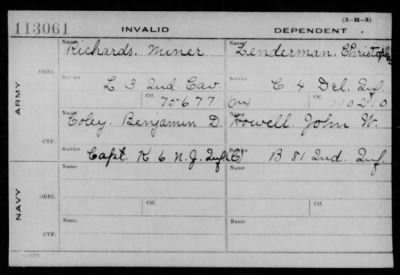 (3-H-3)
113061 INVALID DEPENDENT
Name: Richards, Miner Name: Lenderman, Christopher
ORIG.
Service L 3 Ind Cav. Service C 4 Del. Inf.
Ctf. 70677 (m) Ctf. 110210
ARMY
Name: Coley, Benjamin D. Name: Howell, John W.
CTF.
Service Capt. K 6 N.J. Inf. Service B 81 Ind. Inf.
Name: Name:
ORIG.
Ctf. Ctf.
NAVY
Name: Name:
CTF.